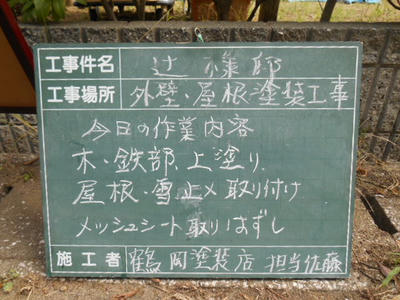 工事件名 辻様邸
工事場所 外壁・屋根塗装工事
今日の作業内容
木・鉄部、上塗り
屋根・雪止メ取り付け
メッシュシート取りはずし
施工者 鶴岡塗装店 担当佐藤